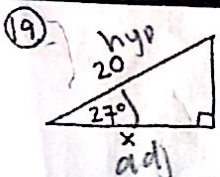 19
hyp
20
27°
x
adj